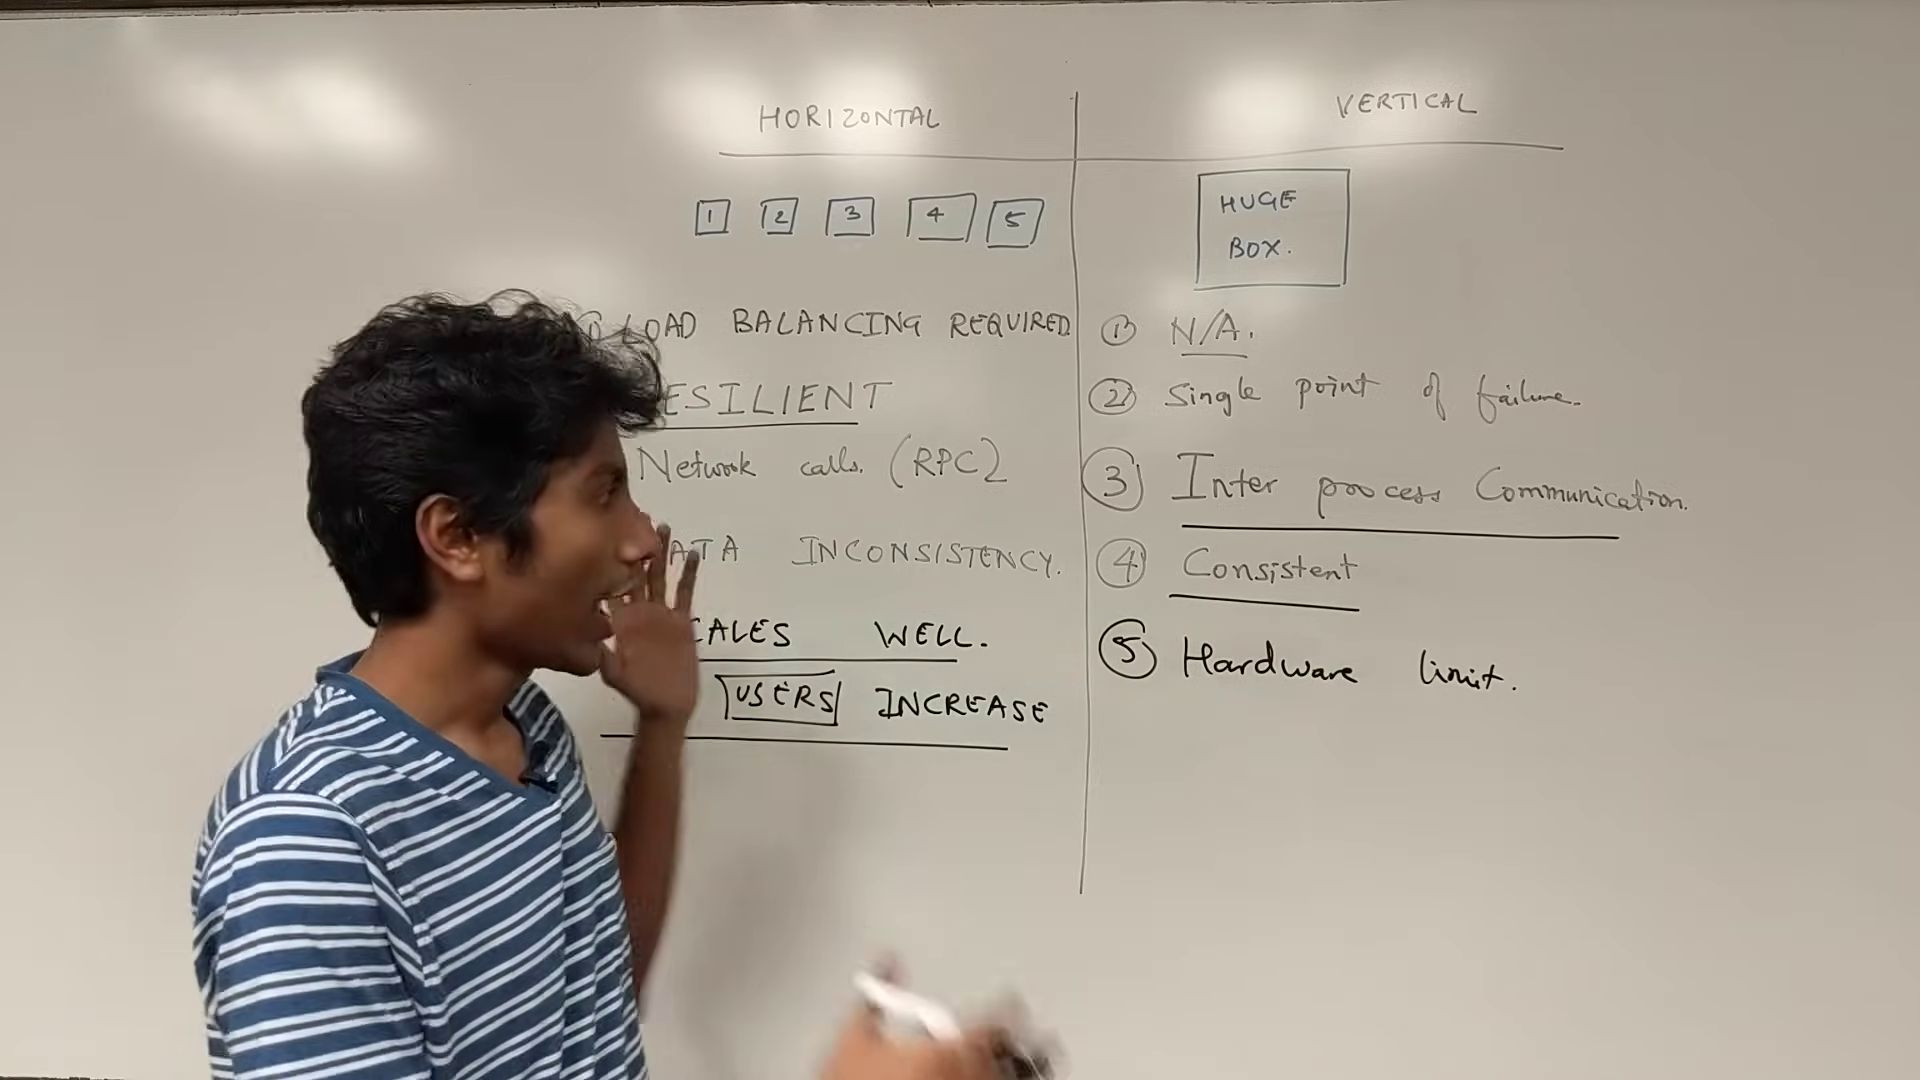 HORIZONTAL
1 2 3 4 5
LOAD BALANCING REQUIRED
ESILIENT
Network calls. (RPC)
ATA INCONSISTENCY.
CALES WELL.
USERS INCREASE
VERTICAL
HUGE
BOX.
① N/A.
② Single point of failure.
③ Inter process Communication.
④ Consistent
⑤ Hardware limit.